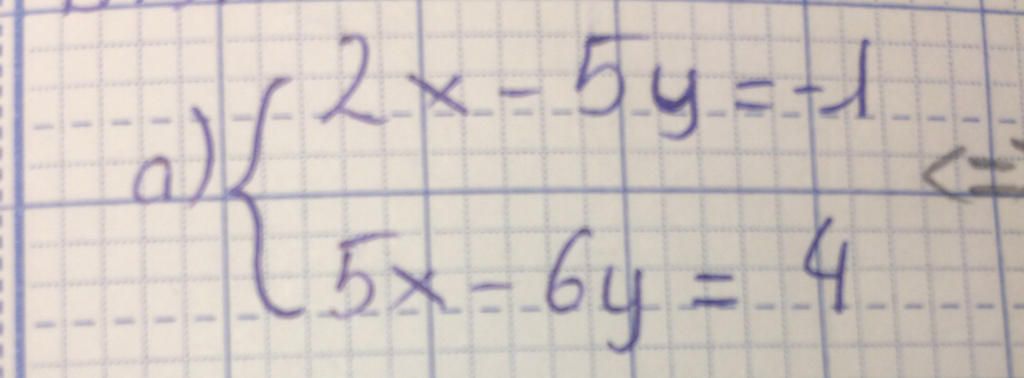 a) { 2x - 5y = -1
5x - 6y = 4 <=>